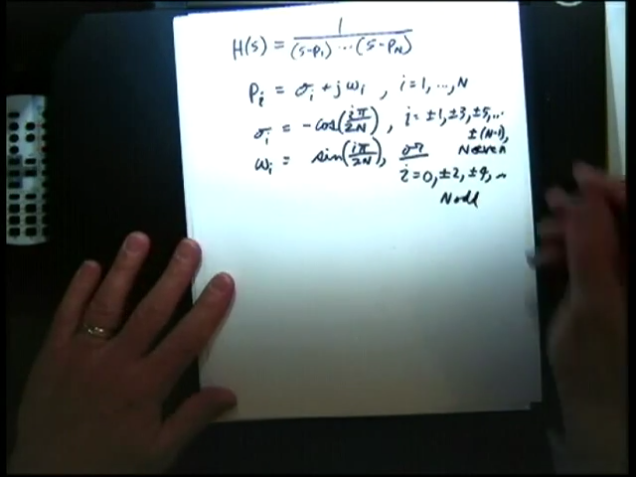 H(s) = 1 / (s-p₁) ⋯ (s-p_N)
p_i = σ_i + jω_i , i=1, ..., N
σ_i = -cos(iπ/2N) , i = ±1, ±3, ±5, ...
± (N-1),
N even
ω_i = sin(iπ/2N), or
i = 0, ±2, ±4, ...
N odd